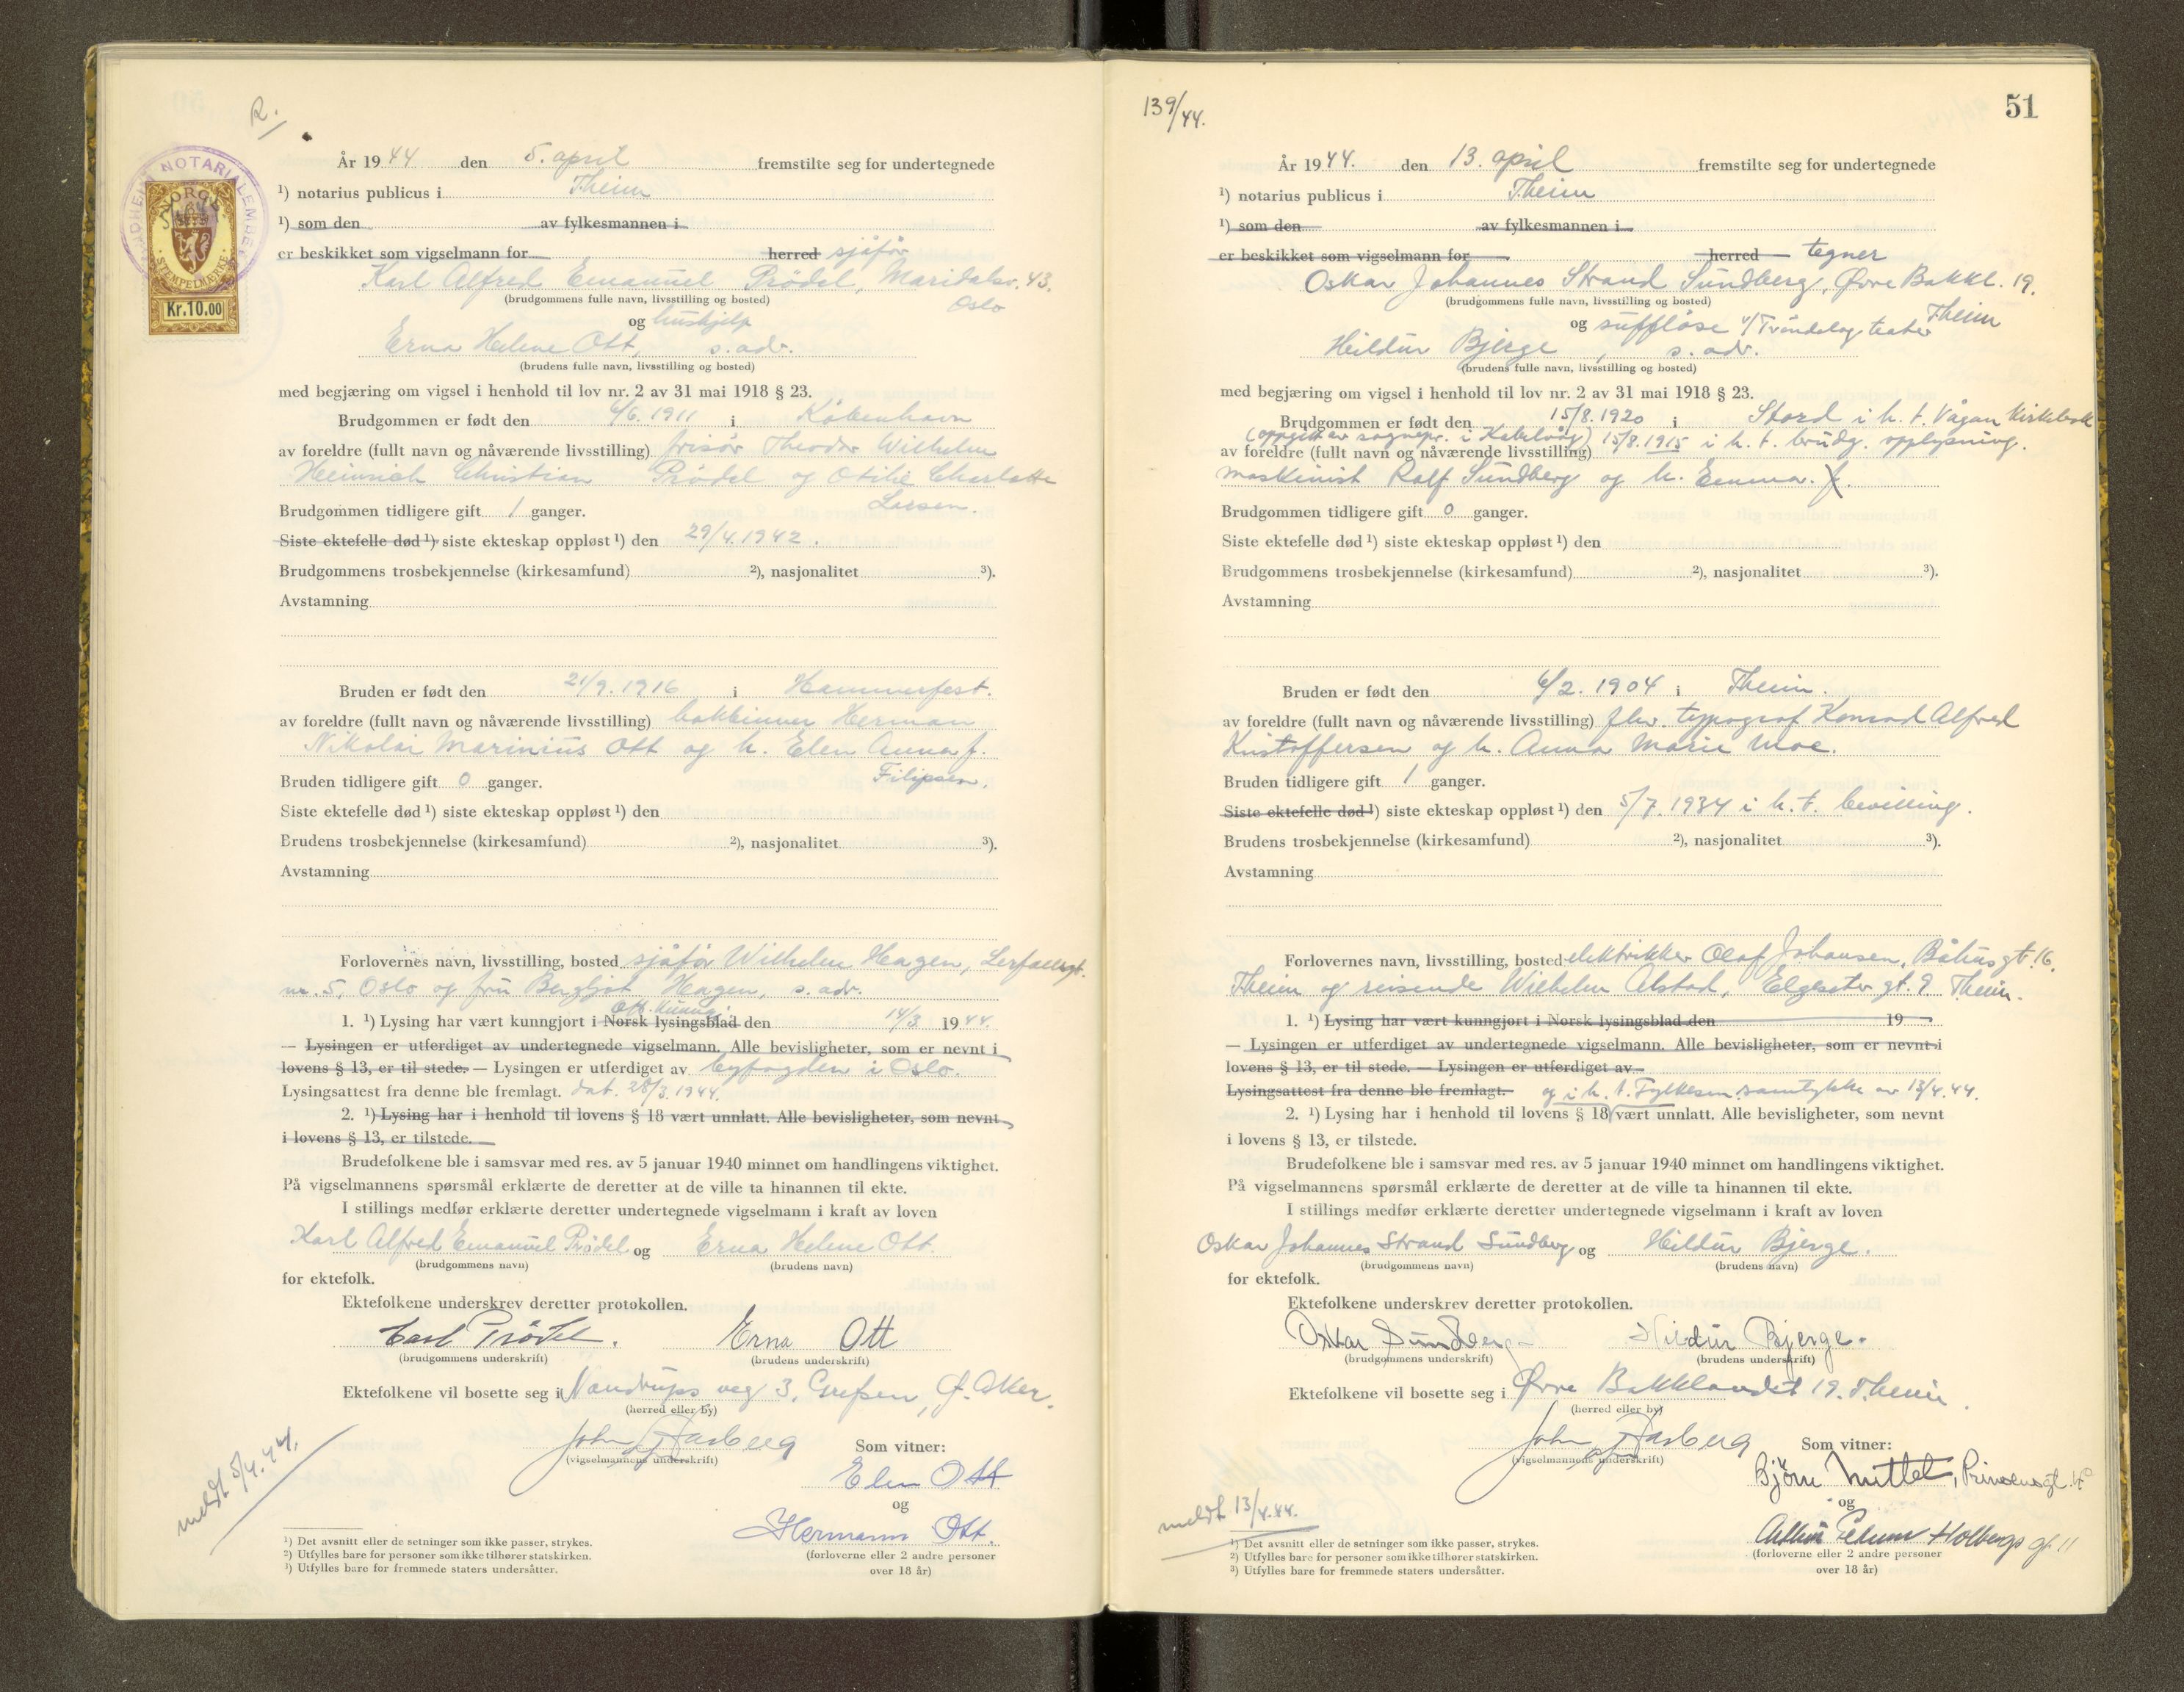 R.
År 1944 den 5. april fremstilte seg for undertegnede
¹) notarius publicus i Theim
¹) som den av fylkesmannen i
er beskikket som vigselmann for herred sjåfør
Karl Alfred Emanuel Prödel, Maridalsv. 43.
Oslo
(brudgommens fulle navn, livsstilling og bosted)
og hushjelp
Erna Helene Ott, s. adr.
(brudens fulle navn, livsstilling og bosted)
med begjæring om vigsel i henhold til lov nr. 2 av 31 mai 1918 § 23.
Brudgommen er født den 6/6. 1911 i København
av foreldre (fullt navn og nåværende livsstilling) frisør Theodor Wilhelm
Heinrich Christian Prödel og Otilie Charlotte
Larsen.
Brudgommen tidligere gift 1 ganger.
Siste ektefelle død ¹) siste ekteskap oppløst ¹) den 29/4. 1942.
Brudgommens trosbekjennelse (kirkesamfund) ²), nasjonalitet ³).
Avstamning
Bruden er født den 21/9. 1916 i Hammerfest.
av foreldre (fullt navn og nåværende livsstilling) Herman
Nikolai Marinius Ott og h. Elen Anna f.
Filipsen.
Bruden tidligere gift 0 ganger.
Siste ektefelle død ¹) siste ekteskap oppløst ¹) den
Brudens trosbekjennelse (kirkesamfund) ²), nasjonalitet ³).
Avstamning
Forlovernes navn, livsstilling, bosted sjåfør Wilhelm Hagen,
nr. 5, Oslo og fru Bergljot Hagen, s. adr.
Off. kunngj.
1. ¹) Lysing har vært kunngjort i Norsk lysingsblad den 14/3 1944.
— Lysingen er utferdiget av undertegnede vigselmann. Alle bevisligheter, som er nevnt i
lovens § 13, er til stede. — Lysingen er utferdiget av byfogden i Oslo.
Lysingsattest fra denne ble fremlagt. dat. 28/3. 1944.
2. ¹) Lysing har i henhold til lovens § 18 vært unnlatt. Alle bevisligheter, som nevnt
i lovens § 13, er tilstede.
Brudefolkene ble i samsvar med res. av 5 januar 1940 minnet om handlingens viktighet.
På vigselmannens spørsmål erklærte de deretter at de ville ta hinannen til ekte.
I stillings medfør erklærte deretter undertegnede vigselmann i kraft av loven
Karl Alfred Emanuel Prödel og Erna Helene Ott.
(brudgommens navn) (brudens navn)
for ektefolk.
Ektefolkene underskrev deretter protokollen.
Carl Prödel. Erna Ott
(brudgommens underskrift) (brudens underskrift)
Ektefolkene vil bosette seg i Nandrups veg 3, Grefsen, Ø. Aker.
(herred eller by)
John Aasberg
(vigselmannens underskrift)
Som vitner:
Elen Ott
og
Hermann Ott.
(forloverne eller 2 andre personer
over 18 år)
meldt 5/4. 44.
¹) Det avsnitt eller de setninger som ikke passer, strykes.
²) Utfylles bare for personer som ikke tilhører statskirken.
³) Utfylles bare for fremmede staters undersåtter.
NOTARIALEMBE
NORGE
STEMPELMERKE
Kr.10.00
139/44.
51
År 1944. den 13. april fremstilte seg for undertegnede
¹) notarius publicus i Theim
¹) som den av fylkesmannen i
er beskikket som vigselmann for herred tegner
Oskar Johannes Strand Sundberg, Øvre Bakkl. 19.
Theim
(brudgommens fulle navn, livsstilling og bosted)
og sufflöse v/ Trøndelag teater
Hildur Bjerge, s. adr.
(brudens fulle navn, livsstilling og bosted)
med begjæring om vigsel i henhold til lov nr. 2 av 31 mai 1918 § 23.
Brudgommen er født den 15/8. 1920 i Stord i h. t. Vågan Kirkebok
(oppgitt av sognepr. i Kabelvåg) 15/8. 1915 i h. t. brudg. opplysning.
av foreldre (fullt navn og nåværende livsstilling)
maskinist Ralf Sundberg og h. Emma. f.
Brudgommen tidligere gift 0 ganger.
Siste ektefelle død ¹) siste ekteskap oppløst ¹) den
Brudgommens trosbekjennelse (kirkesamfund) ²), nasjonalitet ³).
Avstamning
Bruden er født den 6/2. 1904 i Theim.
av foreldre (fullt navn og nåværende livsstilling) fhv. typograf Konrad Alfred
Kristoffersen og h. Anna Marie Moe.
Bruden tidligere gift 1 ganger.
Siste ektefelle død ¹) siste ekteskap oppløst ¹) den 5/7. 1934 i h. t. bevilling.
Brudens trosbekjennelse (kirkesamfund) ²), nasjonalitet ³).
Avstamning
Forlovernes navn, livsstilling, bosted elektrikker Olaf Johansen, Båhusgt. 16,
Theim og reisende Wilhelm Alstad, Elgeseter gt. 9 Theim.
1. ¹) Lysing har vært kunngjort i Norsk lysingsblad den 19
— Lysingen er utferdiget av undertegnede vigselmann. Alle bevisligheter, som er nevnt i
lovens § 13, er til stede. — Lysingen er utferdiget av
Lysingsattest fra denne ble fremlagt. og i h. t. Fylkesm. samtykke av 13/4. 44.
2. ¹) Lysing har i henhold til lovens § 18 vært unnlatt. Alle bevisligheter, som nevnt
i lovens § 13, er tilstede.
Brudefolkene ble i samsvar med res. av 5 januar 1940 minnet om handlingens viktighet.
På vigselmannens spørsmål erklærte de deretter at de ville ta hinannen til ekte.
I stillings medfør erklærte deretter undertegnede vigselmann i kraft av loven
Oskar Johannes Strand Sundberg og Hildur Bjerge.
(brudgommens navn) (brudens navn)
for ektefolk.
Ektefolkene underskrev deretter protokollen.
Oskar Sundberg Hildur Bjerge.
(brudgommens underskrift) (brudens underskrift)
Ektefolkene vil bosette seg i Øvre Bakklandet 19. Theim
(herred eller by)
John Aasberg
(vigselmannens underskrift)
Som vitner:
Björn Mittet, Prinsensgt.
og
Holbergs gt. 11
(forloverne eller 2 andre personer
over 18 år)
meldt 13/4. 44.
¹) Det avsnitt eller de setninger som ikke passer, strykes.
²) Utfylles bare for personer som ikke tilhører statskirken.
³) Utfylles bare for fremmede staters undersåtter.